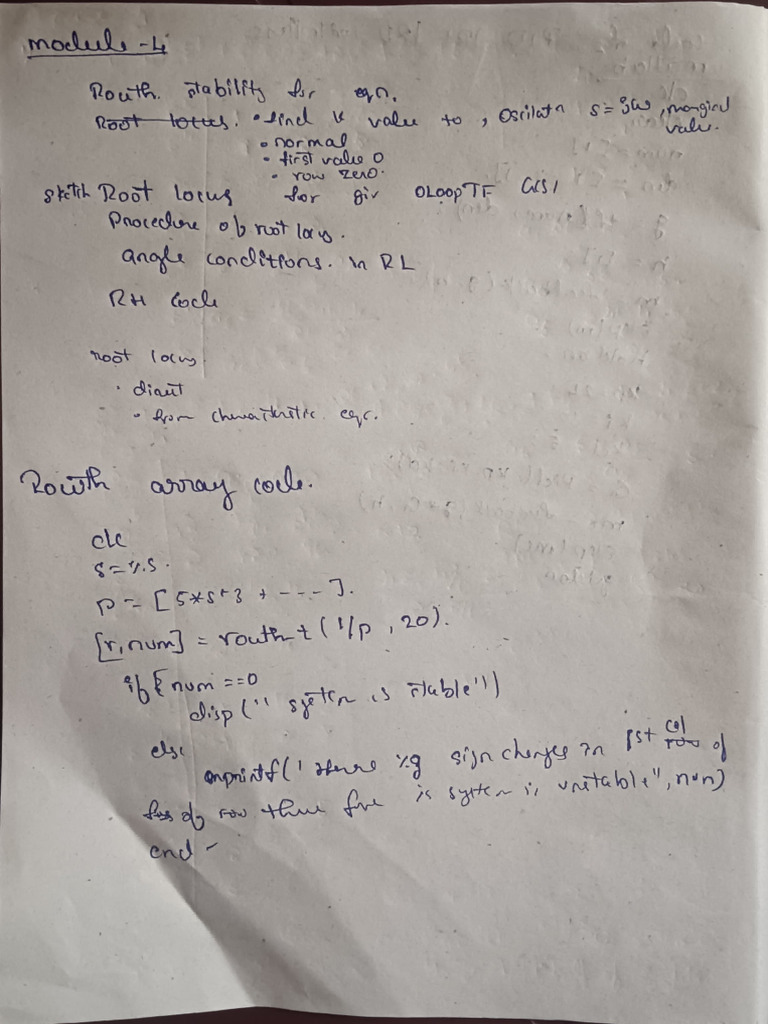 module-4
Routh stability for eqn.
Root locus. • find K value to, Oscilatn s=jω, marginal value.
• normal
• first value 0
• row zero.
sketch Root locus for giv OLoopTF G(s)
Procedure of root locs.
angle conditions. in RL
RH Code
root locus
• direct
• from charactristic eqn.
Routh array code.
clc
s=%s.
p=[5*s^3 + ----].
[r,num] = routh-t(1/p, 20).
if num ==0
disp(" system is stable")
else
mprintf("there %g sign changes in 1st col row of
of row there fore is system is unstable", num)
end